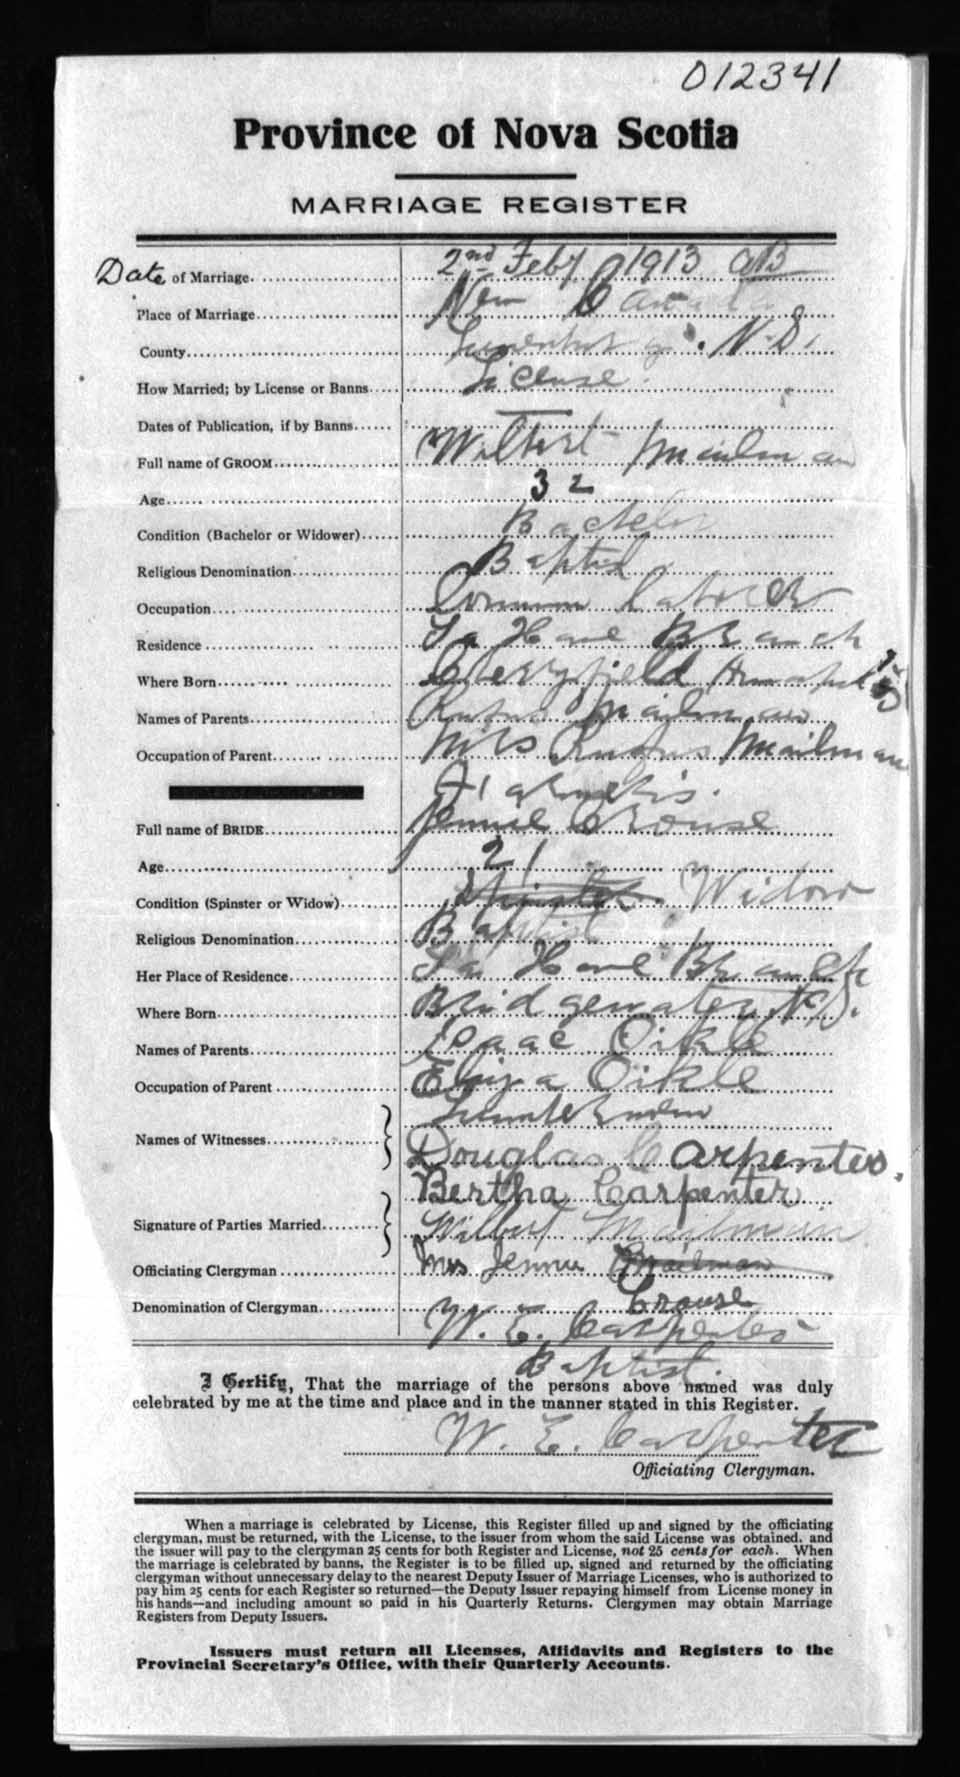 012341
Province of Nova Scotia
MARRIAGE REGISTER
Date of Marriage 2nd Feby 1913
Place of Marriage New Canada
County Lunenburg. N.S.
How Married; by License or Banns License
Dates of Publication, if by Banns
Full name of GROOM Wilbert Mailman
Age 32
Condition (Bachelor or Widower) Bachelor
Religious Denomination Baptist
Occupation Common Laborer
Residence La Have Branch
Where Born
Names of Parents Rufus Mailman
Occupation of Parent Mrs Rufus Mailman
Full name of BRIDE Jennie Crouse
Age 21
Condition (Spinster or Widow) Widow
Religious Denomination Baptist
Her Place of Residence La Have Branch
Where Born Bridgewater N.S.
Names of Parents Isaac Oikle
Occupation of Parent Eliza Oikle
Names of Witnesses
Douglas Carpenter.
Bertha Carpenter
Signature of Parties Married Wilbert Mailman
Officiating Clergyman Mrs Jennie Mailman
Crouse
Denomination of Clergyman W. E. Carpenter
Baptist.
I Certify, That the marriage of the persons above named was duly
celebrated by me at the time and place and in the manner stated in this Register.
W. E. Carpenter
Officiating Clergyman.
When a marriage is celebrated by License, this Register filled up and signed by the officiating
clergyman, must be returned, with the License, to the issuer from whom the said License was obtained, and
the issuer will pay to the clergyman 25 cents for both Register and License, not 25 cents for each. When
the marriage is celebrated by banns, the Register is to be filled up, signed and returned by the officiating
clergyman without unnecessary delay to the nearest Deputy Issuer of Marriage Licenses, who is authorized to
pay him 25 cents for each Register so returned—the Deputy Issuer repaying himself from License money in
his hands—and including amount so paid in his Quarterly Returns. Clergymen may obtain Marriage
Registers from Deputy Issuers.
Issuers must return all Licenses, Affidavits and Registers to the
Provincial Secretary's Office, with their Quarterly Accounts.